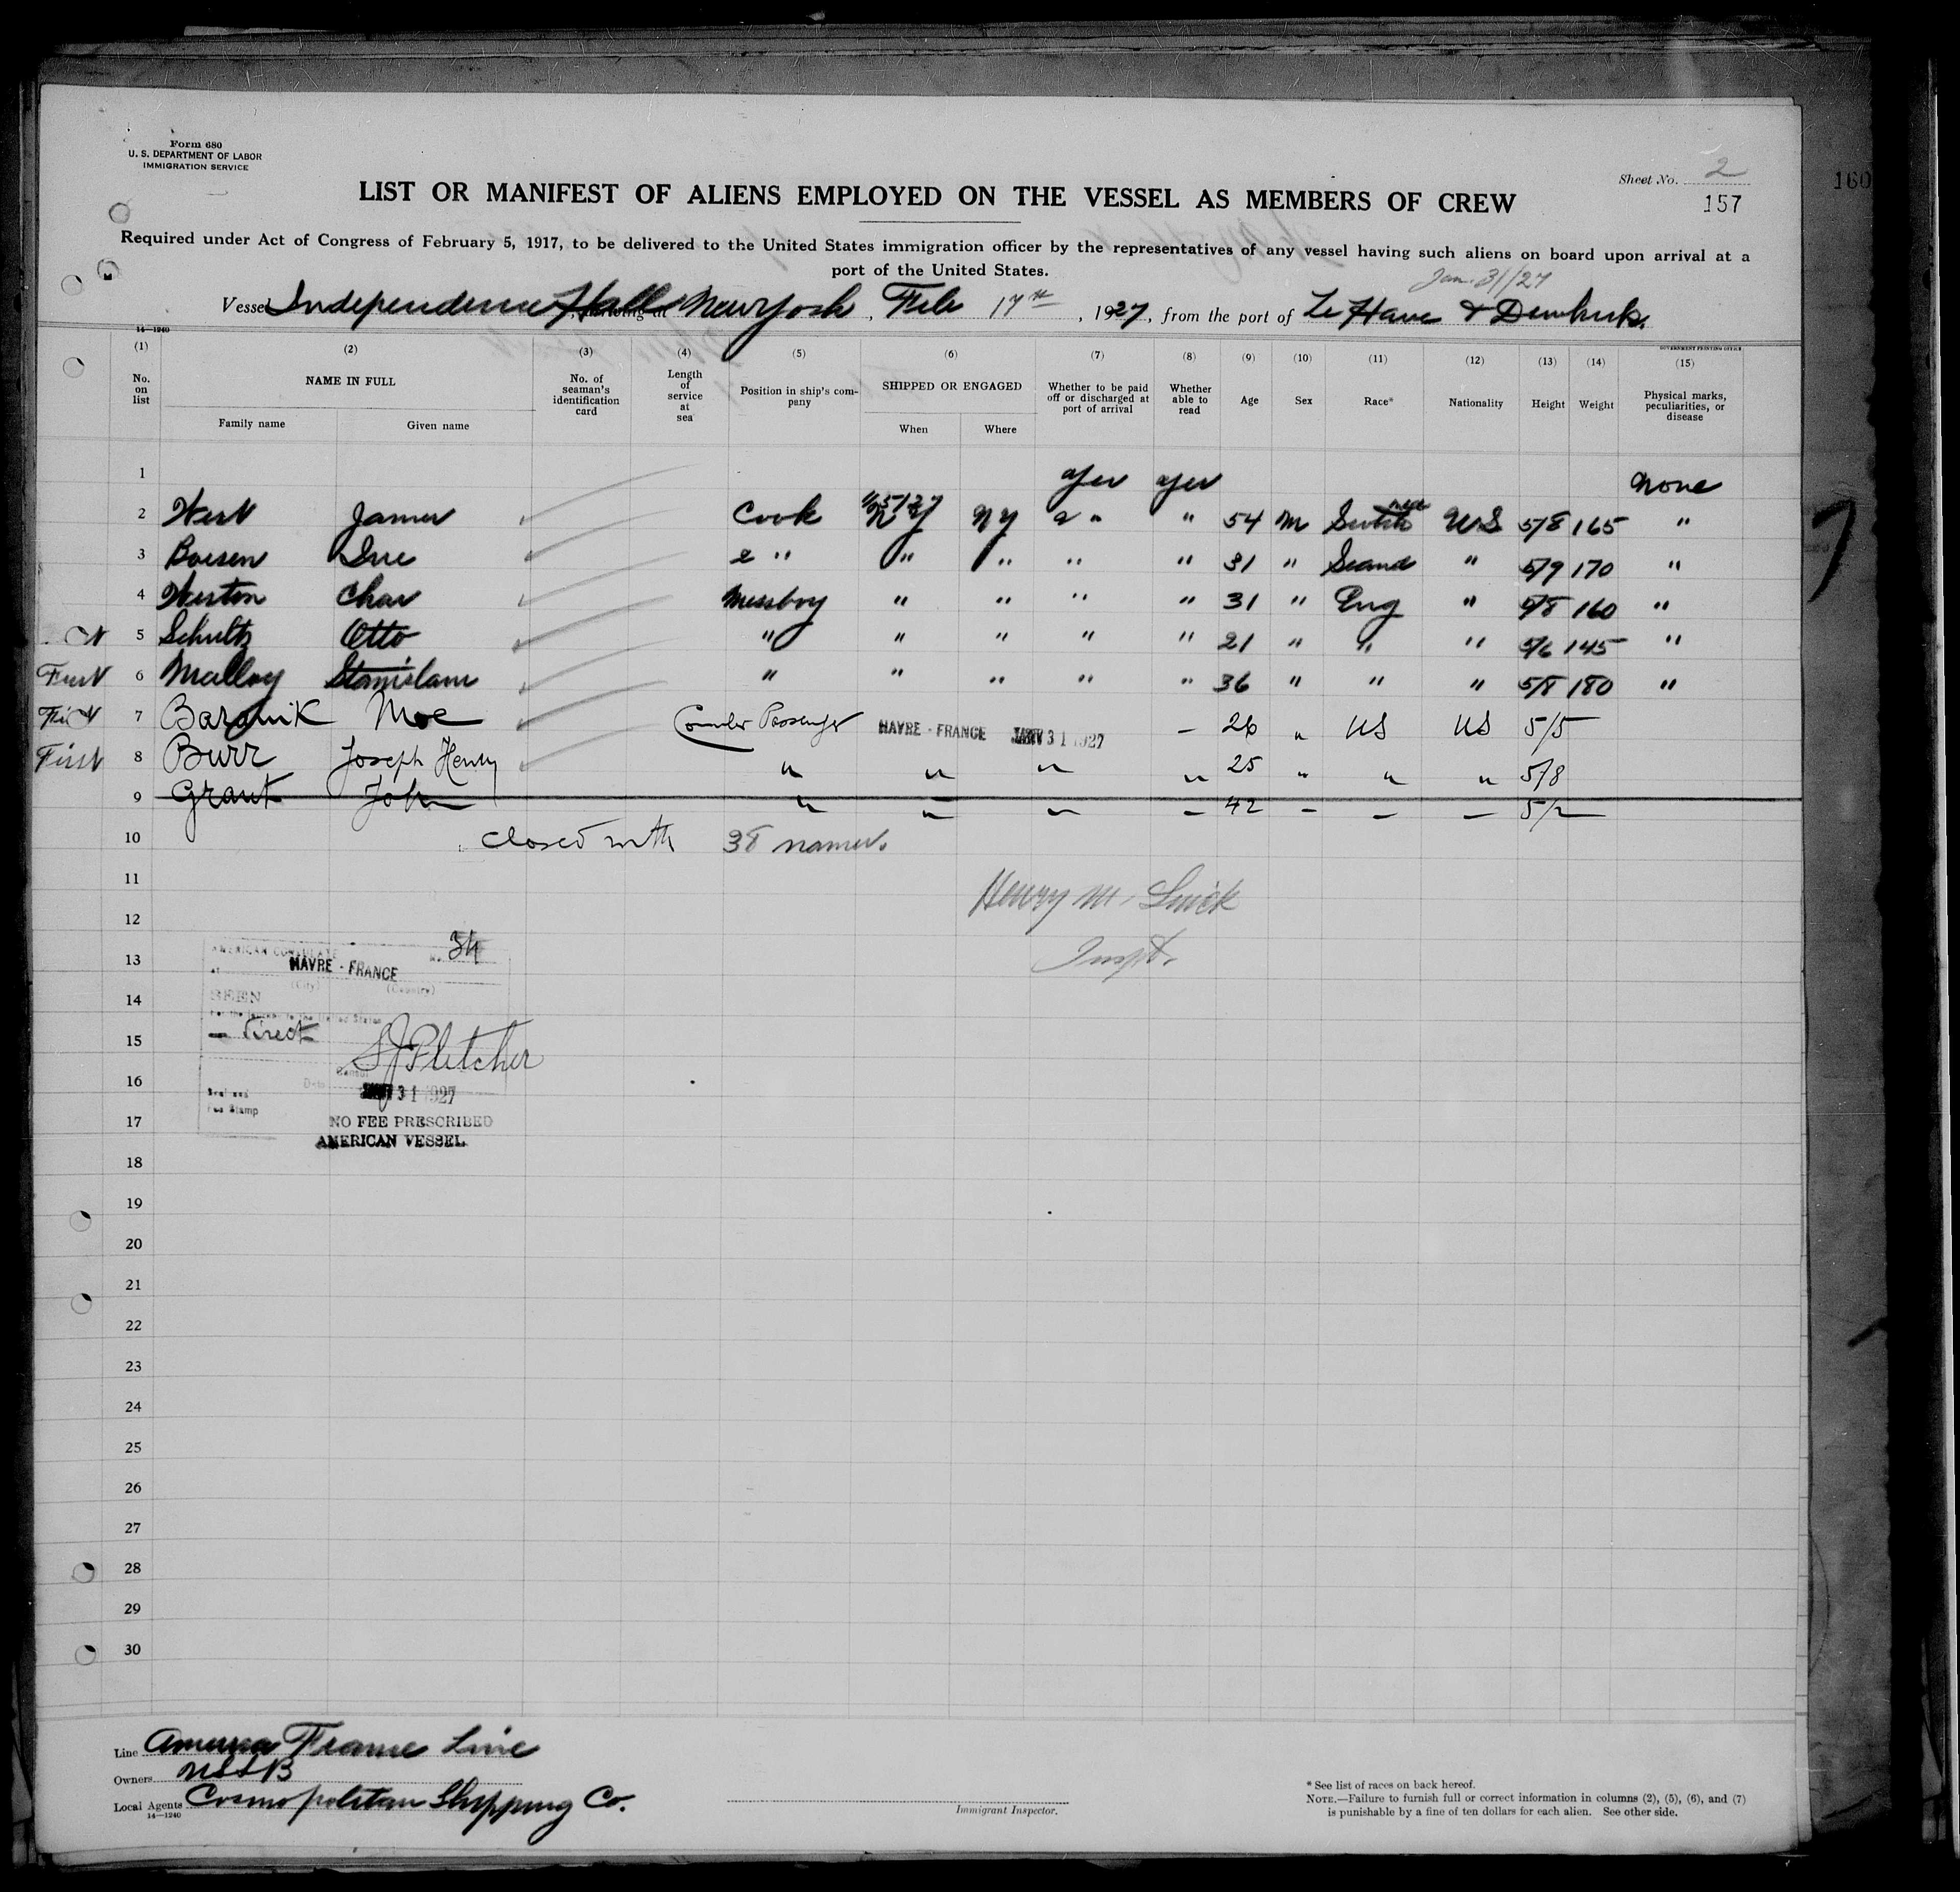 Form 680
U. S. DEPARTMENT OF LABOR
IMMIGRATION SERVICE
Sheet No. 2
160
157
LIST OR MANIFEST OF ALIENS EMPLOYED ON THE VESSEL AS MEMBERS OF CREW
Required under Act of Congress of February 5, 1917, to be delivered to the United States immigration officer by the representatives of any vessel having such aliens on board upon arrival at a
port of the United States.
Jan. 31/27
Vessel Independence Hall, arriving at New York, Feb 17th, 1927, from the port of Le Havre & Dunkirk.
14—1240
GOVERNMENT PRINTING OFFICE
(1) (2) (3) (4) (5) (6) (7) (8) (9) (10) (11) (12) (13) (14) (15)
No. on list
NAME IN FULL
Family name
Given name
No. of seaman's identification card
Length of service at sea
Position in ship's company
SHIPPED OR ENGAGED
When
Where
Whether to be paid off or discharged at port of arrival
Whether able to read
Age
Sex
Race*
Nationality
Height
Weight
Physical marks, peculiarities, or disease
1 yes yes None
2 West James Cook NY " " 54 M US 5/8 165 "
3 Boesen " " " " " 31 " Scand " 5/9 170 "
4 Weston Chas Messboy " " " " 31 " Eng " 5/8 160 "
5 Schultz Otto " " " " " 21 " " " 5/6 145 "
First 6 Malloy Stanislaus " " " " " 36 " " " 5/8 180 "
First 7 Moe Consular Passenger HAVRE - FRANCE JAN 31 1927 — 26 " US US 5/5
First 8 Burr Joseph Henry " " " " 25 " " " 5/8
9 Grant John " " " " 42 " " " 5/2
10 Closed with 38 names.
11 Henry M.
12
Inspt.
13
14
15
16
17
18
19
20
21
22
23
24
25
26
27
28
29
30
AMERICAN CONSULATE No. 34
at HAVRE - FRANCE
(City) (Country)
SEEN
For the journey to the United States
— Direct
S J Fletcher
Consul
Date JAN 31 1927
Seal and
Fee Stamp
NO FEE PRESCRIBED
AMERICAN VESSEL
Line America France Line
Owners USSB
Local Agents Cosmopolitan Shipping Co.
14—1240
Immigrant Inspector.
* See list of races on back hereof.
NOTE.—Failure to furnish full or correct information in columns (2), (5), (6), and (7)
is punishable by a fine of ten dollars for each alien. See other side.